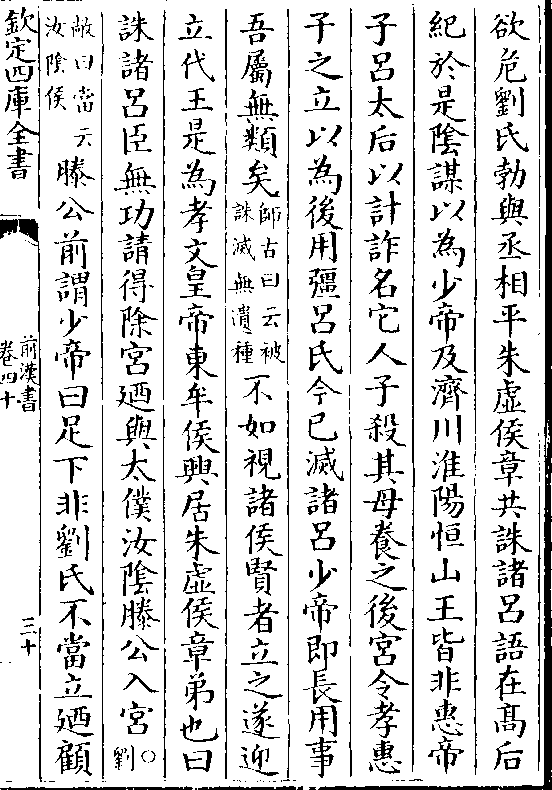 欲危劉氏勃與丞相平朱虛侯章共誅諸呂語在髙后
紀於是隂謀以為少帝及濟川淮陽恒山王皆非惠帝
子呂太后以計詐名它人子殺其母養之後宮令孝惠
子之立以為後用彊呂氏今已滅諸呂少帝即長用事
吾屬無類矣師古曰云被誅滅無遺種不如視諸侯賢者立之遂迎
立代王是為孝文皇帝東牟侯興居朱虛侯章弟也曰
誅諸呂臣無功請得除宮廼與太僕汝隂滕公入宮○劉
敞曰當云汝隂侯滕公前謂少帝曰足下非劉氏不當立廼顧
欽定四庫全書
前漢書
卷四十
三十